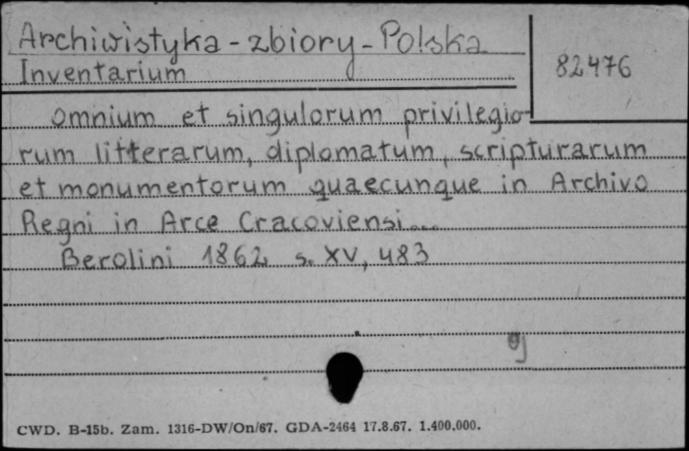 Archiwistyka - zbiory - Polska
82476
Inventarium
omnium et singulorum privilegio-
rum litterarum, diplomatum, scripturarum
et monumentorum quaecunque in Archivo
Regni in Arce Cracoviensi...
Berolini 1862 s. XV, 483
CWD. B-15b. Zam. 1316-DW/On/67. GDA-2464 17.8.67. 1.400.000.